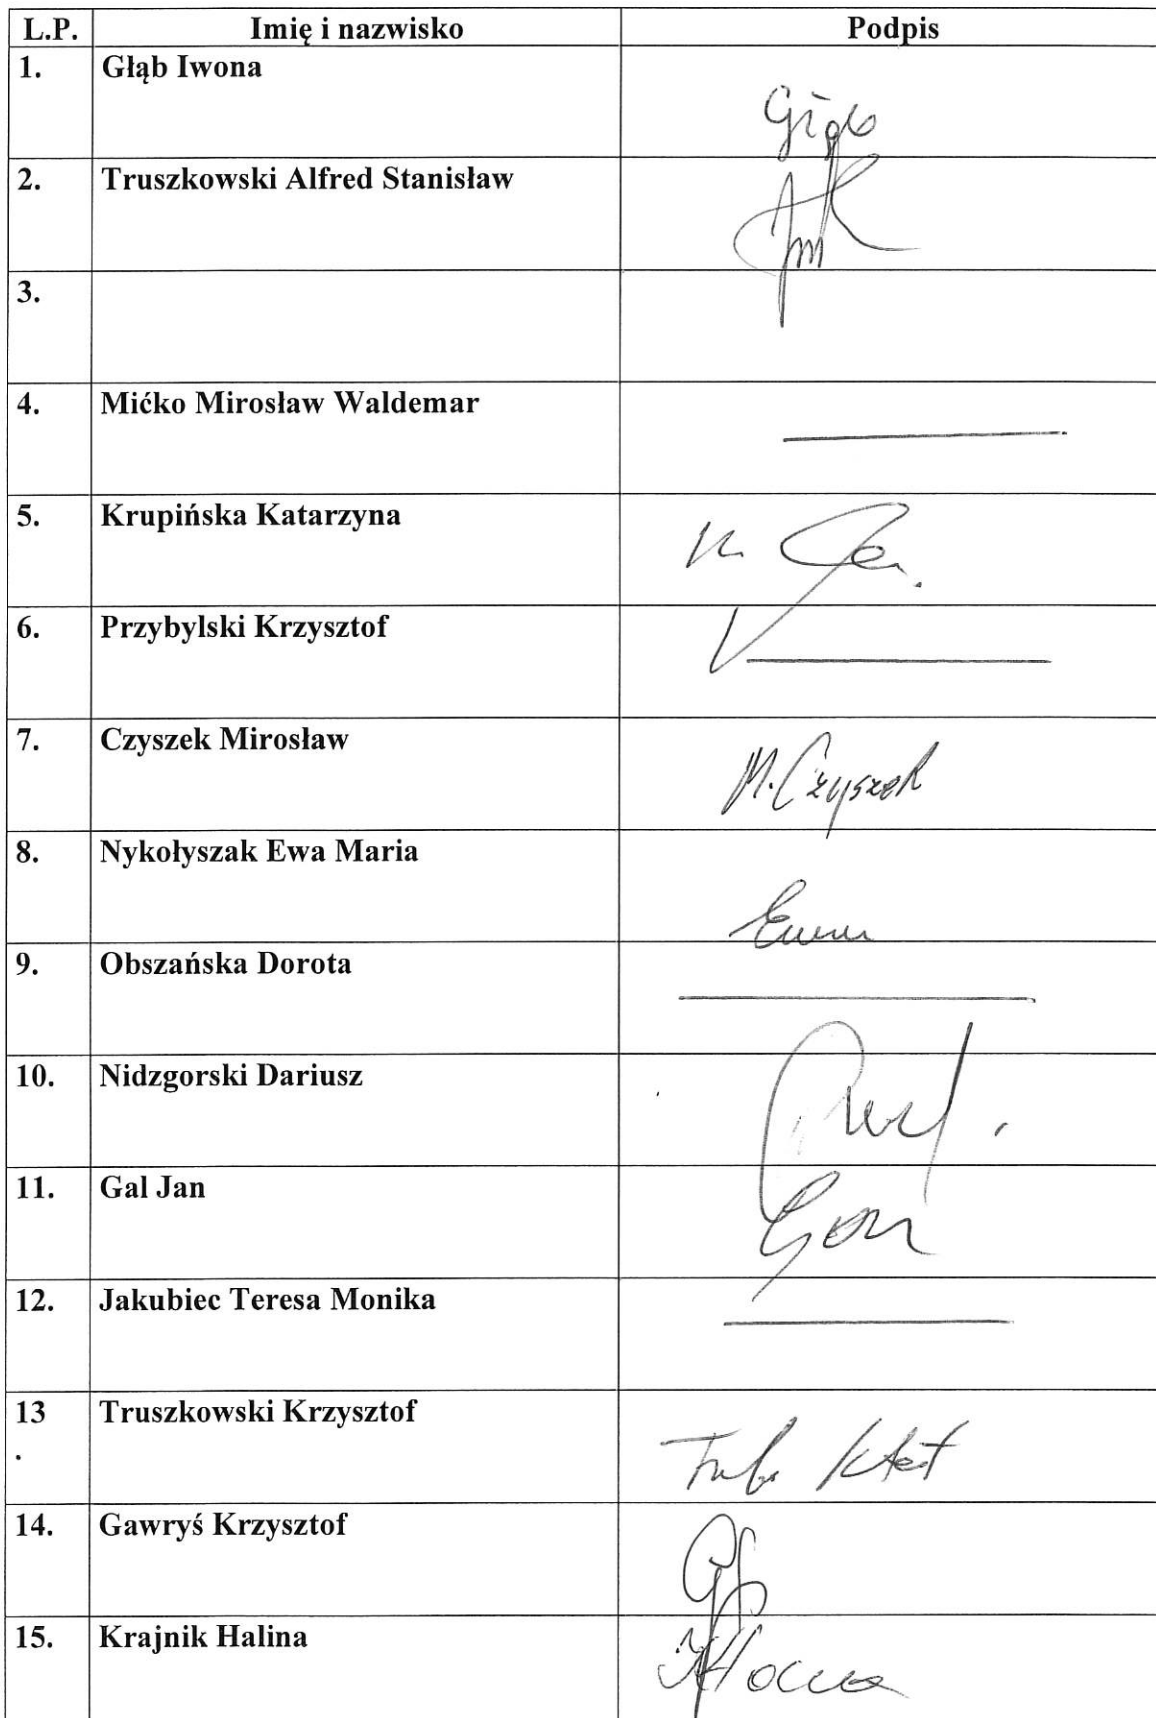 L.P. Imię i nazwisko Podpis
1. Głąb Iwona
Głąb
2. Truszkowski Alfred Stanisław
3.
4. Mićko Mirosław Waldemar
5. Krupińska Katarzyna
6. Przybylski Krzysztof
7. Czyszek Mirosław
M. Czyszek
8. Nykołyszak Ewa Maria
9. Obszańska Dorota
10. Nidzgorski Dariusz
11. Gal Jan
12. Jakubiec Teresa Monika
13 Truszkowski Krzysztof
.
14. Gawryś Krzysztof
15. Krajnik Halina